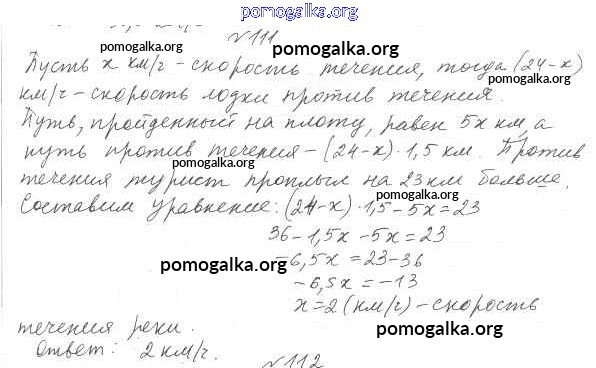 pomogalka.org
№ 111
pomogalka.org
pomogalka.org
Пусть x км/ч - скорость течения, тогда (24-x)
pomogalka.org
км/ч - скорость лодки против течения.
pomogalka.org
Путь, пройденный на плоту, равен 5x км, а
pomogalka.org
путь против течения - (24-x)·1,5 км. Против
pomogalka.org
течения турист проплыл на 23 км больше.
pomogalka.org
Составим уравнение: (24-x)·1,5-5x=23
36-1,5x-5x=23
-6,5x=23-36
pomogalka.org
-6,5x=-13
x=2 (км/ч) - скорость
течения реки.
pomogalka.org
Ответ: 2 км/ч.
№ 112